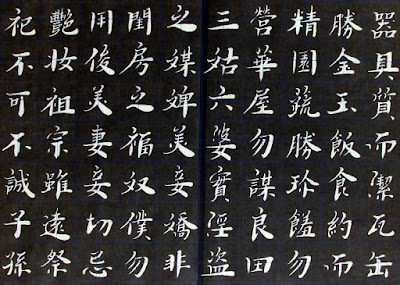 器具質而潔瓦缶
勝金玉飯食約而
精園蔬勝珍饈勿
營華屋勿謀良田
三姑六婆實淫盜
之媒婢美妾嬌非
閨房之福奴僕勿
用俊美妻妾切忌
艷妝祖宗雖遠祭
祀不可不誠子孫